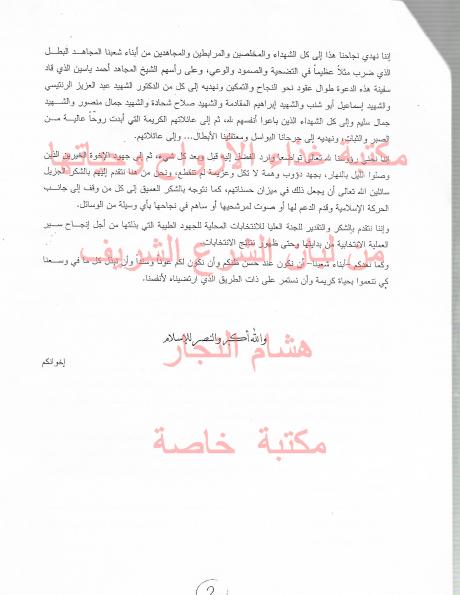 إننا نهدي نجاحنا هذا إلى كل الشهداء والمخلصين والمرابطين والمجاهدين من أبناء شعبنا المجاهد البطل
الذي ضرب مثلاً عظيماً في التضحية والصمود والوعي، وعلى رأسهم الشيخ المجاهد أحمد ياسين الذي قاد
سفينة هذه الدعوة طوال عقود نحو النجاح والتمكين ونهديه إلى كل من الدكتور الشهيد عبد العزيز الرنتيسي
والشهيد إسماعيل أبو شنب والشهيد إبراهيم المقادمة والشهيد صلاح شحادة والشهيد جمال منصور والشهيد
جمال سليم وإلى كل الشهداء الذين باعوا أنفسهم لله، ثم إلى عائلاتهم الكريمة التي أبدت روحاً عالية من
الصبر والثبات، ونهديه إلى جرحانا البواسل ومعتقلينا الأبطال... وإلى عائلاتهم.
مكتبة غناء الأرواح
إننا نحني رؤوسنا لله تعالى تواضعاً وارد الفضل إليه قبل وبعد كل شيء، ثم إلى جهود الإخوة الخيرين الذين
وصلوا الليل بالنهار، بجهد دؤوب وهمة لا تكل وعزيمة لم تنقطع، ونحن من هنا نتقدم إليهم بالشكر الجزيل
سائلين الله تعالى أن يجعل ذلك في ميزان حسناتهم، كما نتوجه بالشكر العميق إلى كل من وقف إلى جانب
الحركة الإسلامية وقدم الدعم لها أو صوت لمرشحيها أو ساهم في نجاحها بأي وسيلة من الوسائل.
وإننا نتقدم بالشكر والتقدير للجنة العليا للانتخابات المحلية للجهود الطيبة التي بذلتها من أجل إنجاح سير
العملية الانتخابية من بدايتها وحتى ظهور نتائج الانتخابات.
من لبنان الشرع الشريف
وكما نعدكم -أبناء شعبنا- أن نكون عند حسن ظنكم وأن نكون لكم عوناً وسنداً وأن نبذل كل ما في وسعنا
كي تنعموا بحياة كريمة وأن نستمر على ذات الطريق الذي ارتضيناه لأنفسنا.
والله أكبر والنصر للإسلام
هشام النجار
إخوانكم
مكتبة خاصة
2